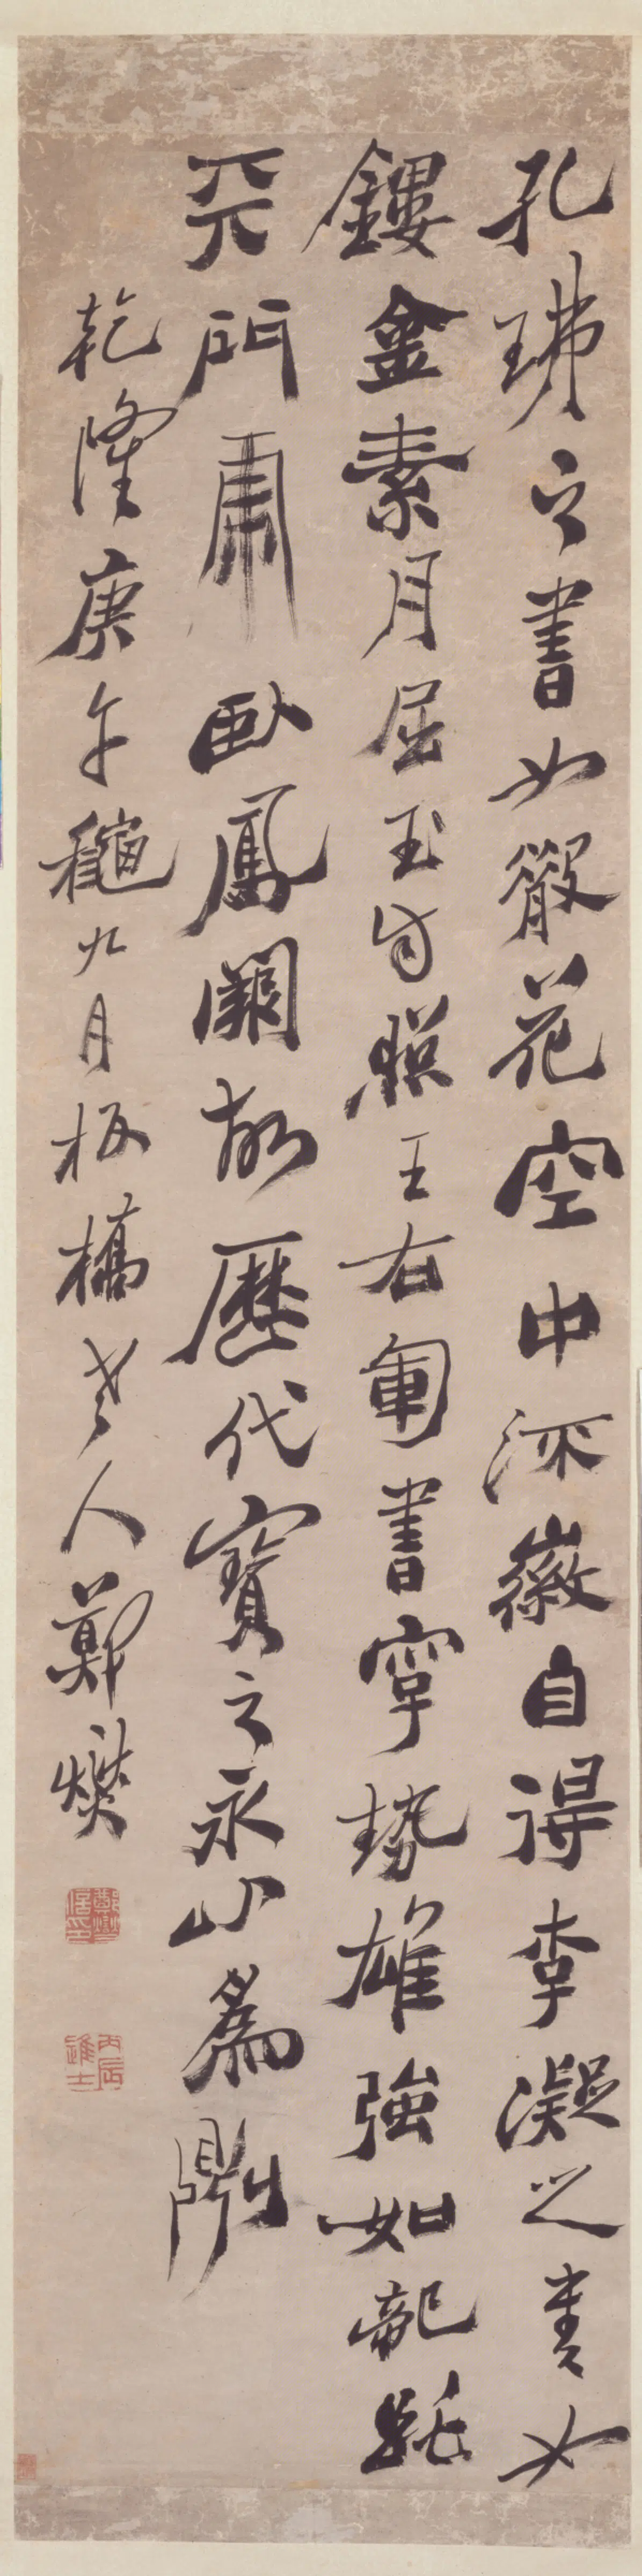 孔琳之書如散花空中流徽自得李凝之書如
鏤金素月屈玉自照王右軍書字勢雄強如龍跳
天門虎臥鳳闕故歷代寶之永以為訓
乾隆庚午穐九月板橋老人鄭燮
鄭燮信印
丙辰進士